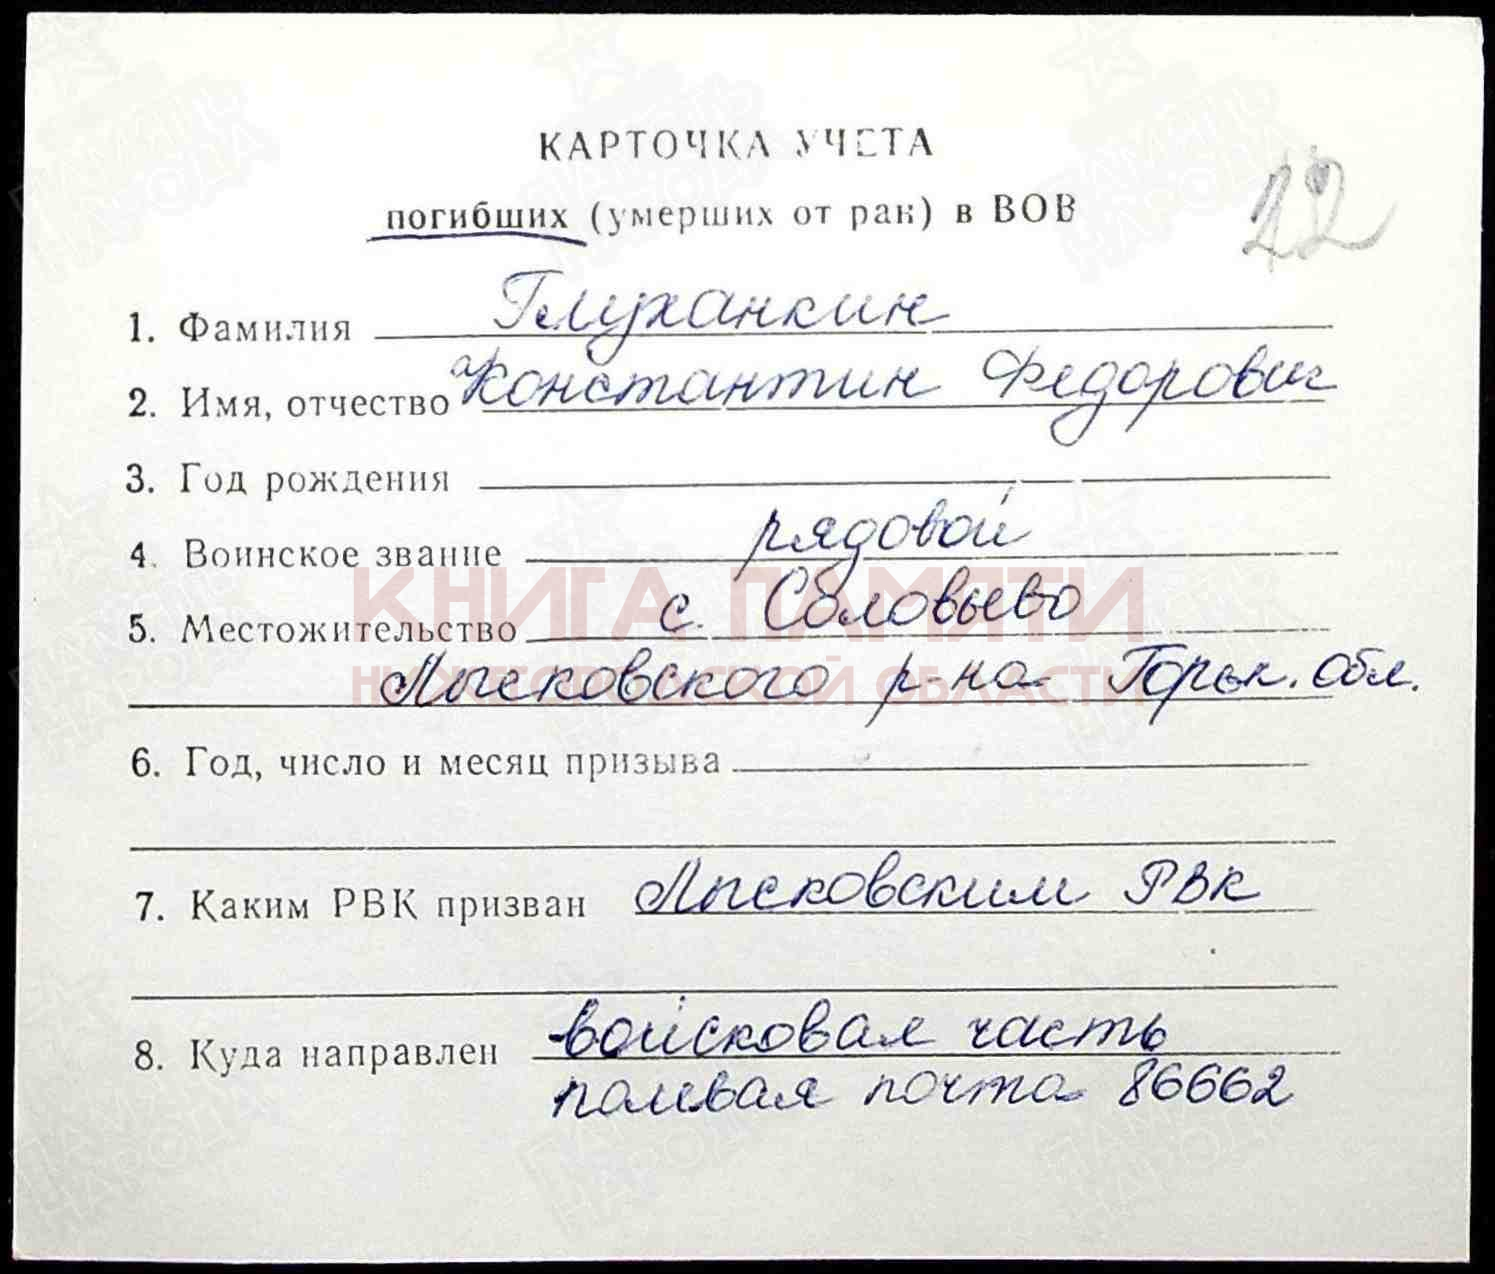 КАРТОЧКА УЧЕТА
22
погибших (умерших от ран) в ВОВ
1. Фамилия Глуханкин
2. Имя, отчество Константин Федорович
3. Год рождения
4. Воинское звание рядовой
КНИГА ПАМЯТИ
5. Местожительство с. Соловьево
НИЖЕГОРОДСКОЙ ОБЛАСТИ
Лысковского р-на Горьк. обл.
6. Год, число и месяц призыва
7. Каким РВК призван Лысковским РВК
8. Куда направлен войсковая часть
полевая почта 86662
ПАМЯТЬ НАРОДА